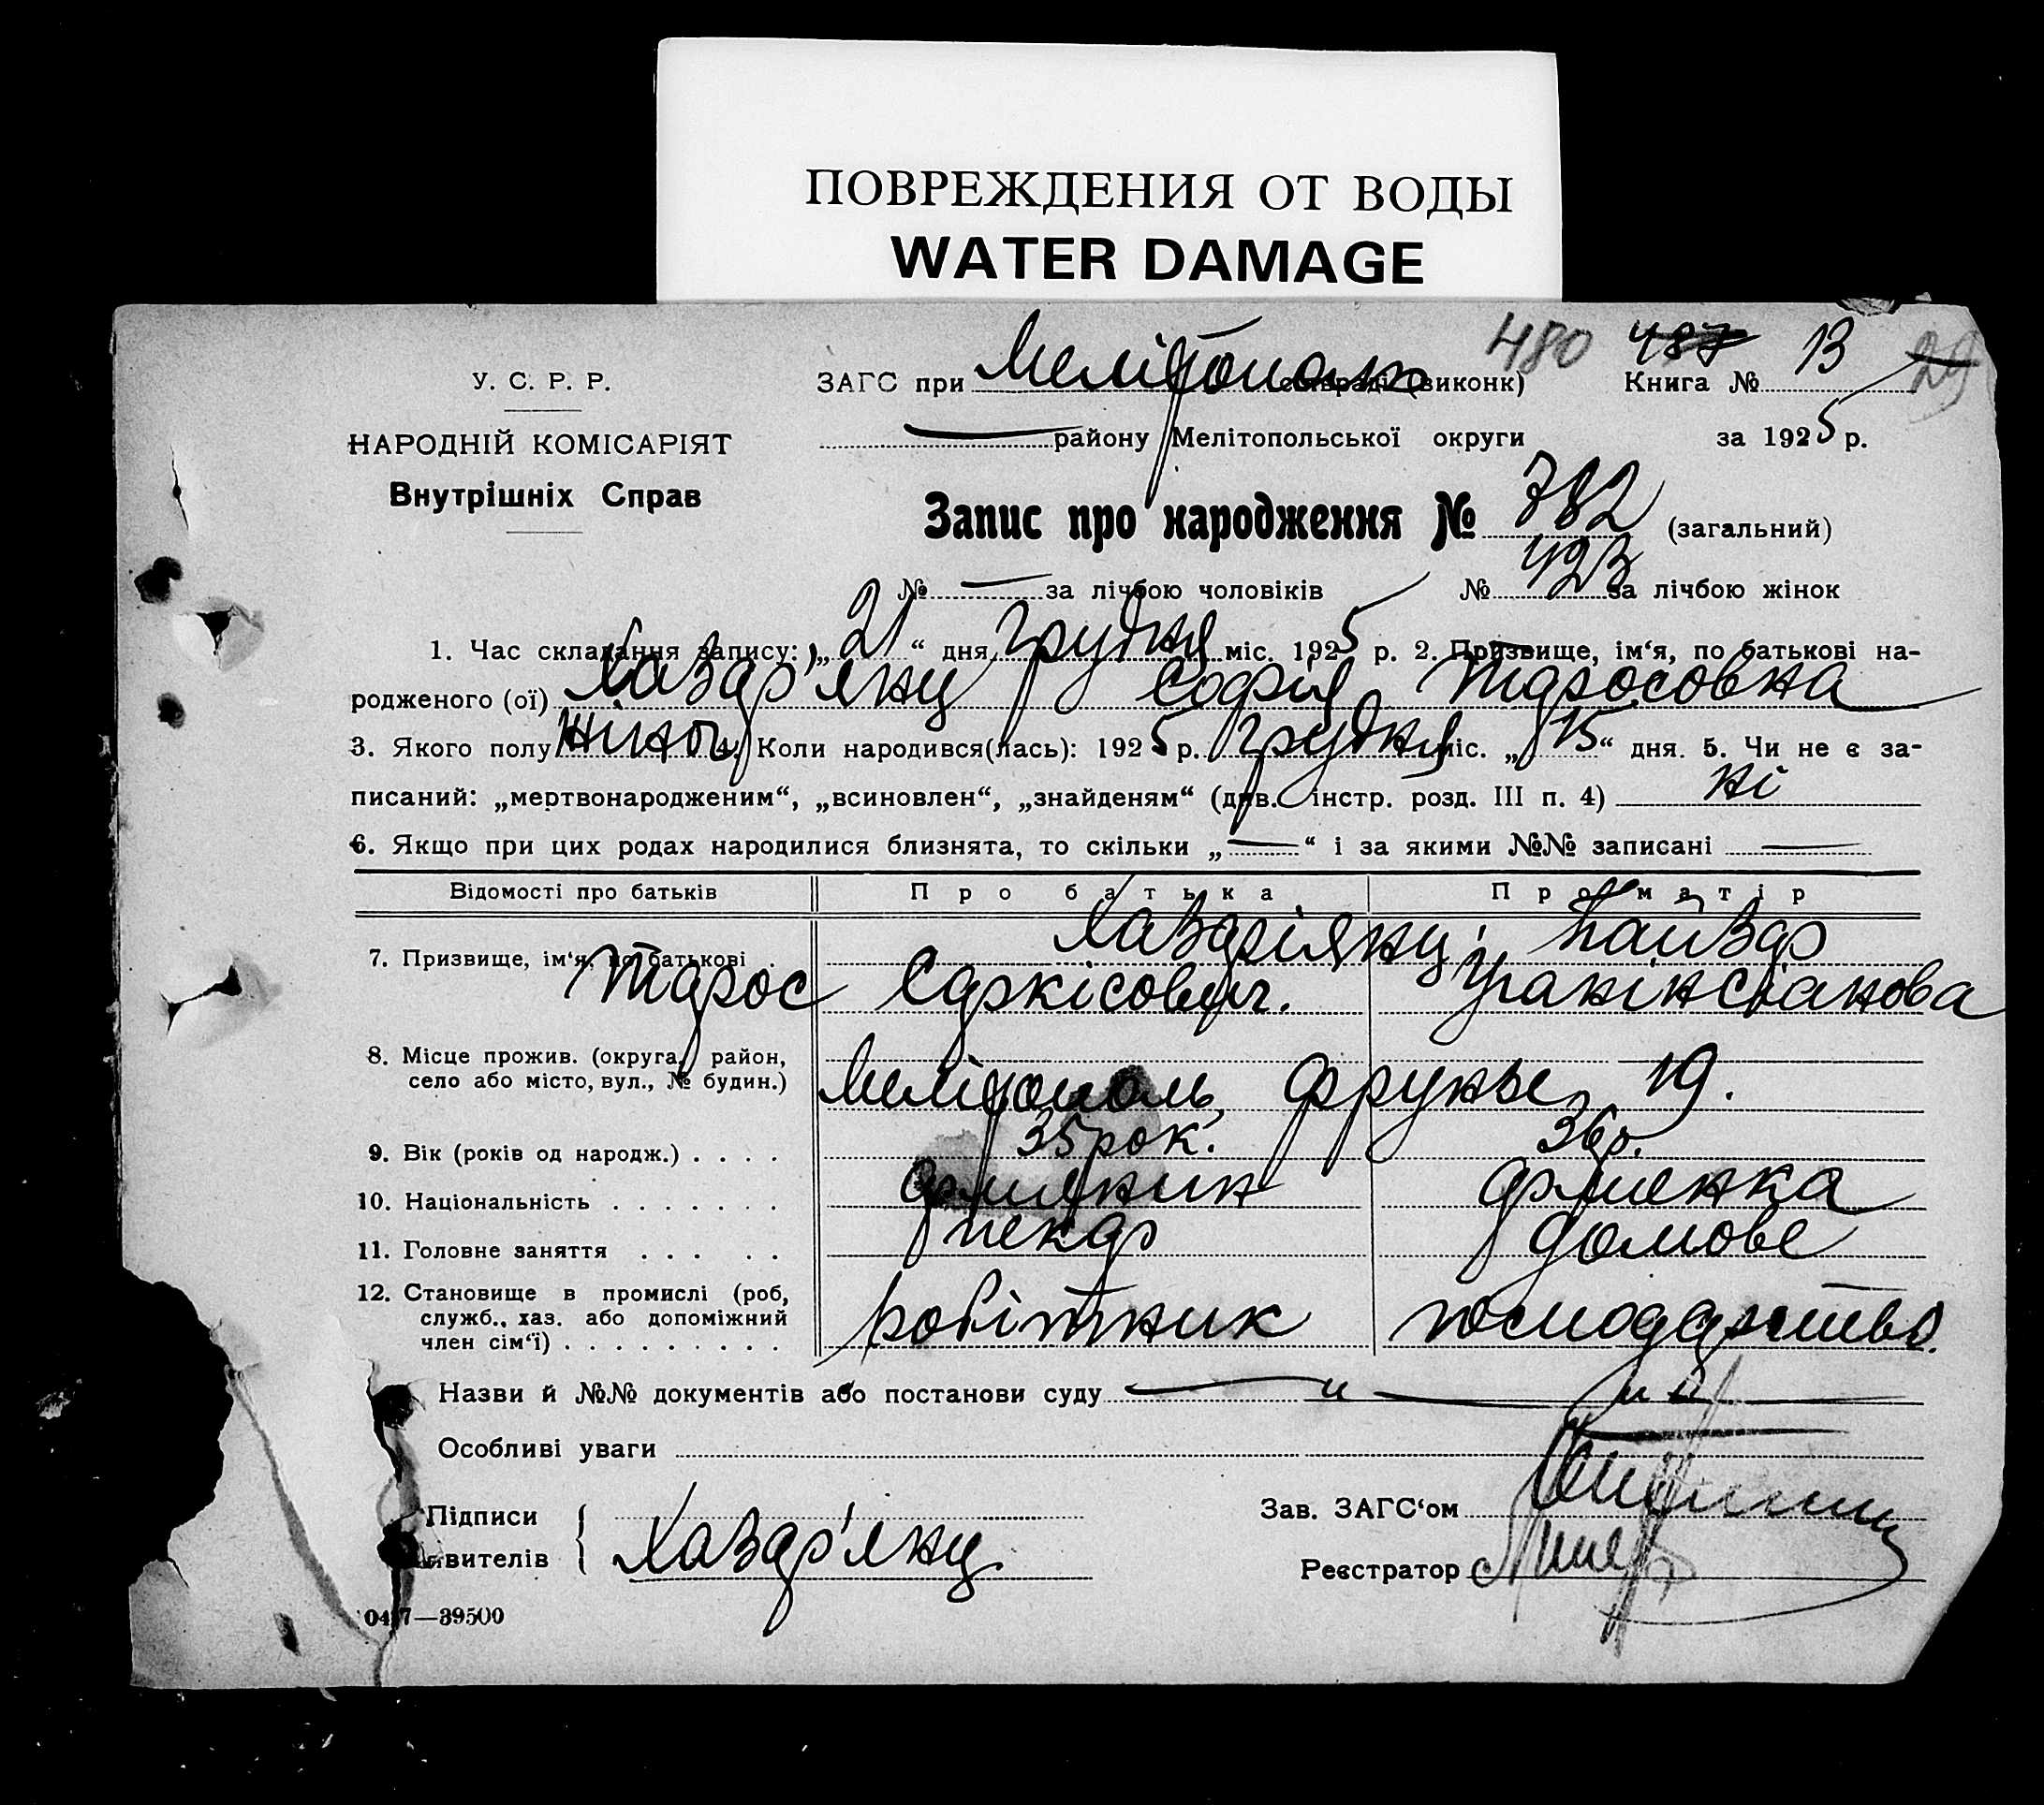 ПОВРЕЖДЕНИЯ ОТ ВОДЫ
WATER DAMAGE
480 487 13 29
У. С. Р. Р. ЗАГС при (виконк) Книга №
НАРОДНІЙ КОМІСАРІЯТ району Мелітопольської округи за 1925 р.
Внутрішніх Справ
Запис про народження № 782 (загальний)
№ — за лічбою чоловіків № 423 за лічбою жінок
1. Час складання запису: „21“ дня грудня міс. 1925 р. 2. Призвище, ім‘я, по батькові на-
родженого (ої) Хазар'янц Софія Таросовна
3. Якого полу жіноч. 4. Коли народився(лась): 1925 р. грудня міс. „15“ дня. 5. Чи не є за-
писаний: „мертвонародженим“, „всиновлен“, „знайденям“ (див. інстр. розд. III п. 4) ні
6. Якщо при цих родах народилися близнята, то скільки „—“ і за якими №№ записані —
Відомості про батьків Про батька Про матір
Хазаріянц,
7. Призвище, ім‘я, по батькові
Тарос Саркісович.
8. Місце прожив. (округа, район,
село або місто, вул., № будин.) Мелітополь, Фрунзе 19.
9. Вік (років од народж.) . . . . 35 рок. 36 р.
10. Національність . . . . . . . армянин армянка
11. Головне заняття . . . . . пекар домове
12. Становище в промислі (роб,
служб., хаз. або допоміжний робітник господарство.
член сім‘ї) . . . . . . . . .
Назви й №№ документів або постанови суду — „ —
Особливі уваги
Підписи Зав. ЗАГС‘ом
явителів Хазар'янц Реєстратор
—39500